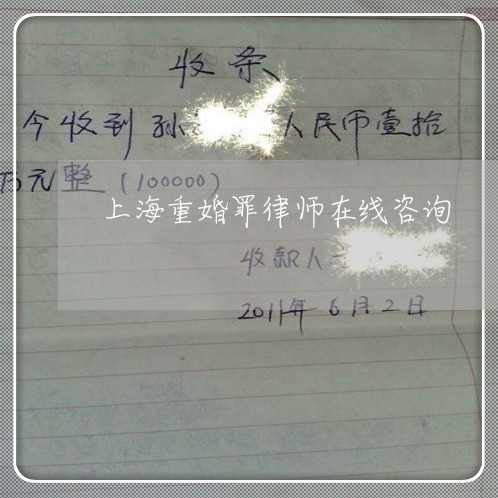 收条
今收到孙 人民币壹拾
万元整(100000)
上海重婚罪律师在线咨询
收款人
2011年6月2日